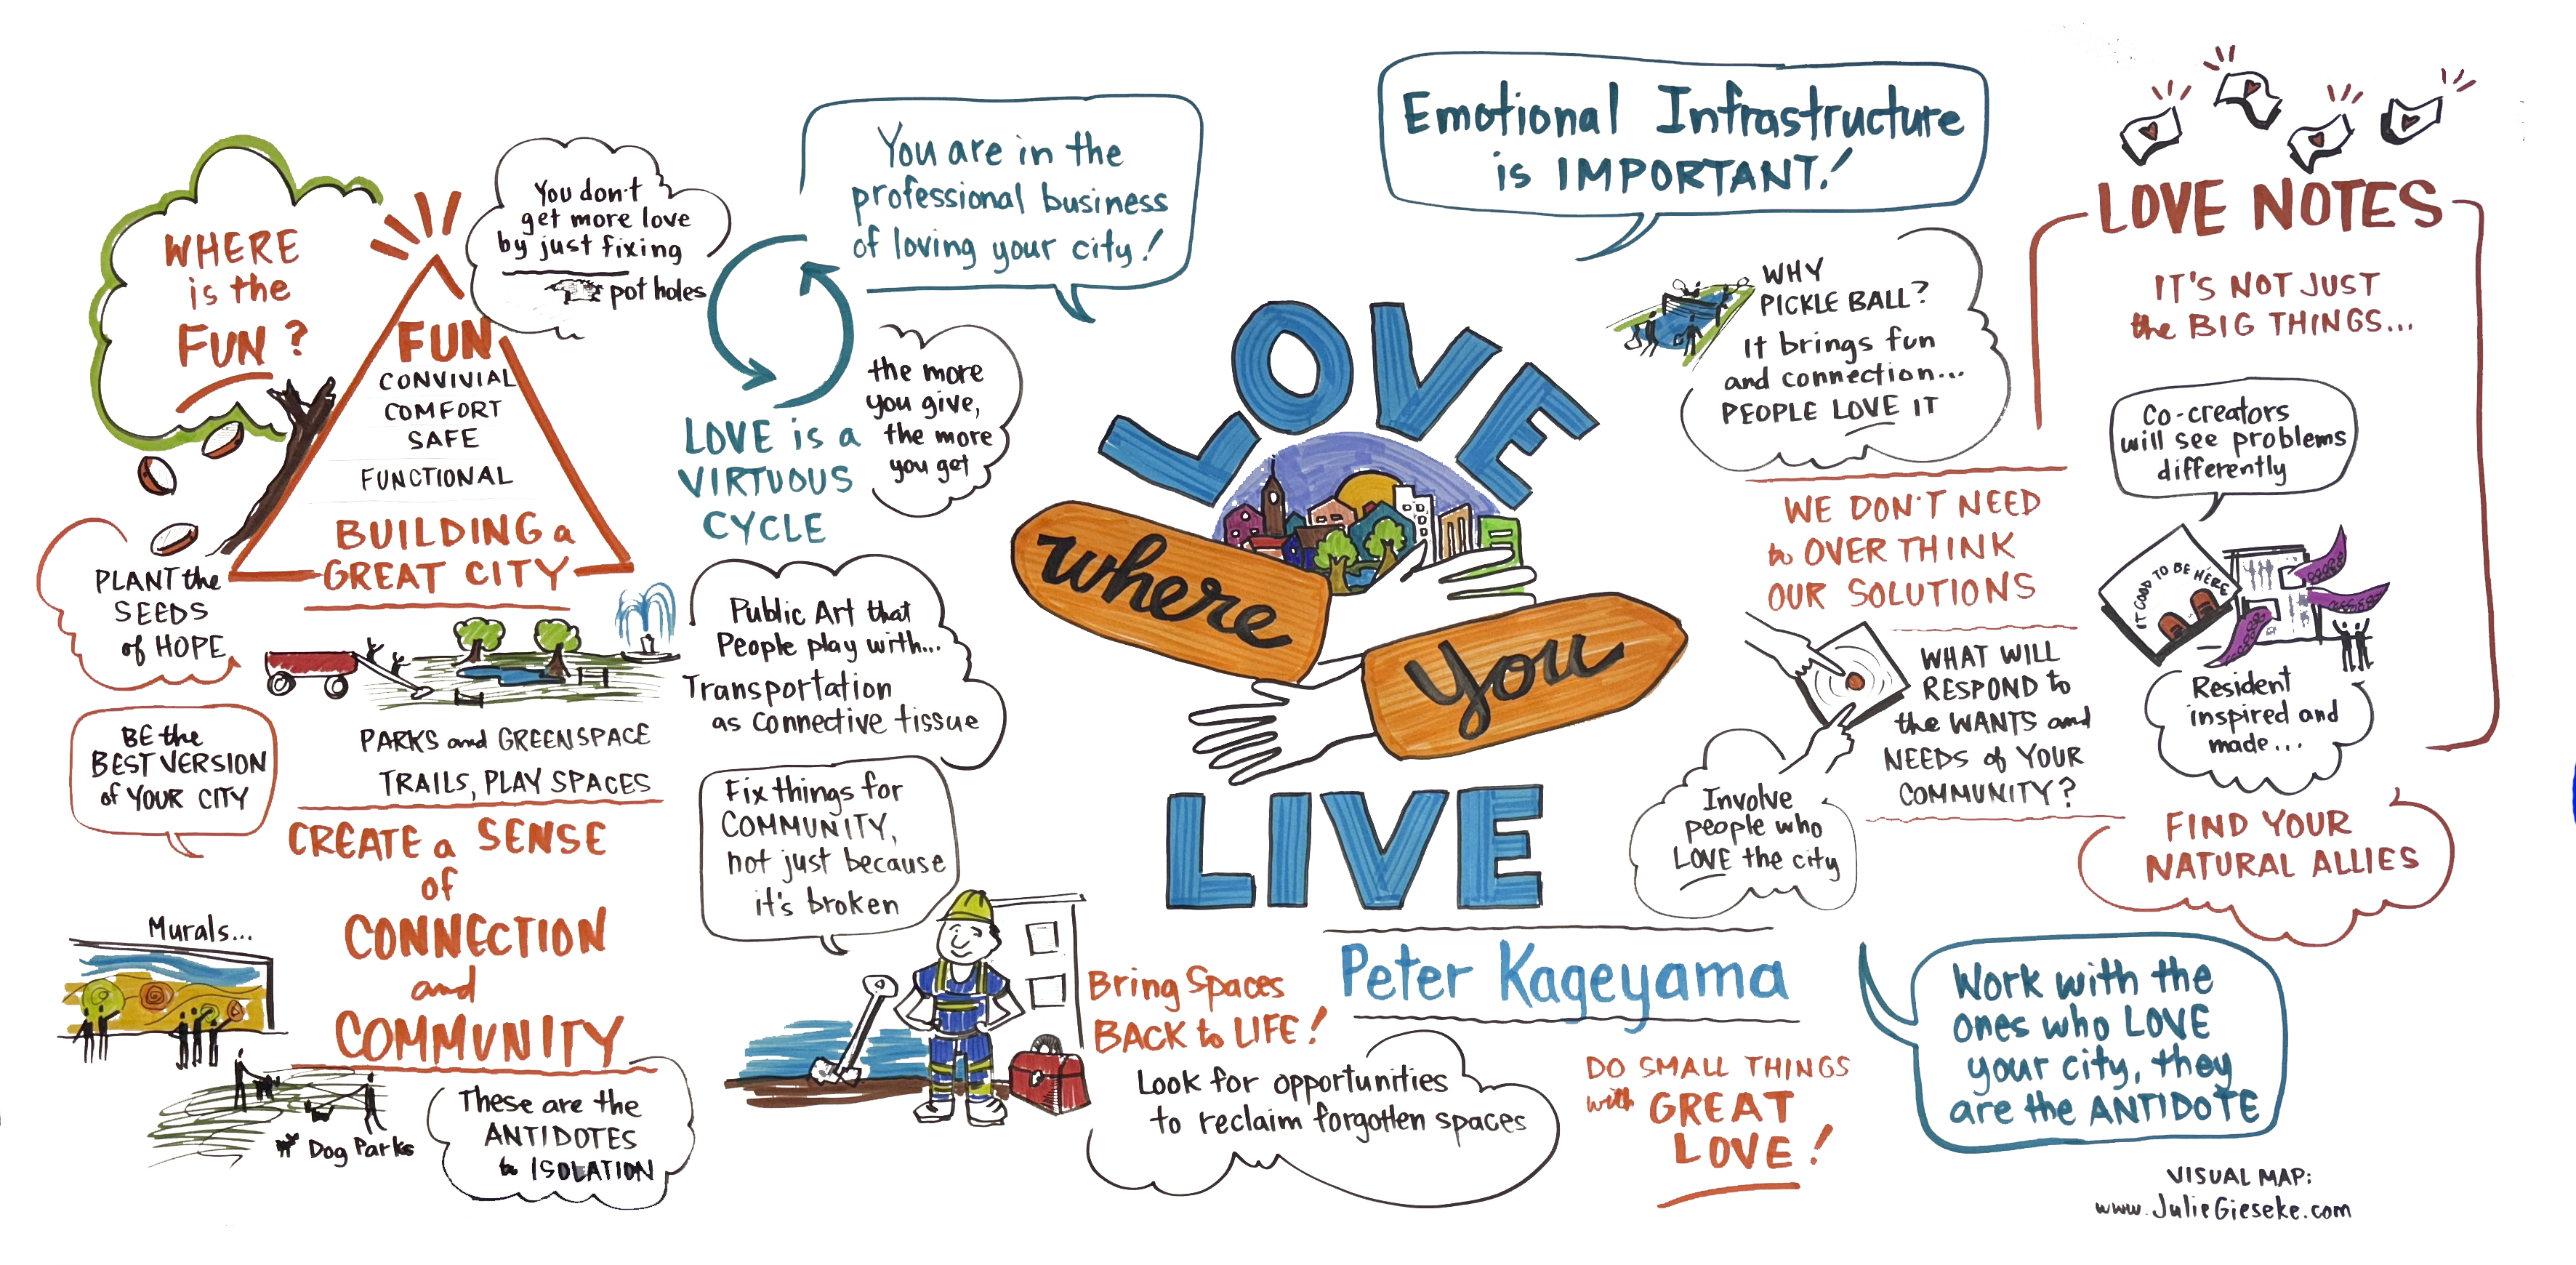 WHERE
is the
FUN?
You don't
get more love
by just fixing
pot holes
FUN
CONVIVIAL
COMFORT
SAFE
FUNCTIONAL
BUILDING a
GREAT CITY
PLANT the
SEEDS
of HOPE
BE the
BEST VERSION
of YOUR CITY
PARKS and GREENSPACE
TRAILS, PLAY SPACES
CREATE a SENSE
of
CONNECTION
and
COMMUNITY
Murals...
Dog Parks
These are the
ANTIDOTES
to ISOLATION
You are in the
professional business
of loving your city!
LOVE is a
VIRTUOUS
CYCLE
the more
you give,
the more
you get
Public Art that
People play with...
Transportation
as connective tissue
Fix things for
COMMUNITY,
not just because
it's broken
Bring Spaces
BACK to LIFE!
Look for opportunities
to reclaim forgotten spaces
LOVE
where
you
LIVE
Peter Kageyama
Emotional Infrastructure
is IMPORTANT!
WHY
PICKLE BALL?
It brings fun
and connection...
PEOPLE LOVE IT
WE DON'T NEED
to OVER THINK
OUR SOLUTIONS
WHAT WILL
RESPOND to
the WANTS and
NEEDS of YOUR
COMMUNITY?
Involve
people who
LOVE the city
DO SMALL THINGS
with GREAT
LOVE!
LOVE NOTES
IT'S NOT JUST
the BIG THINGS...
Co-creators
will see problems
differently
IT GOOD TO BE HERE
Resident
inspired and
made...
FIND YOUR
NATURAL ALLIES
Work with the
ones who LOVE
your city, they
are the ANTIDOTE
VISUAL MAP:
www.JulieGieseke.com